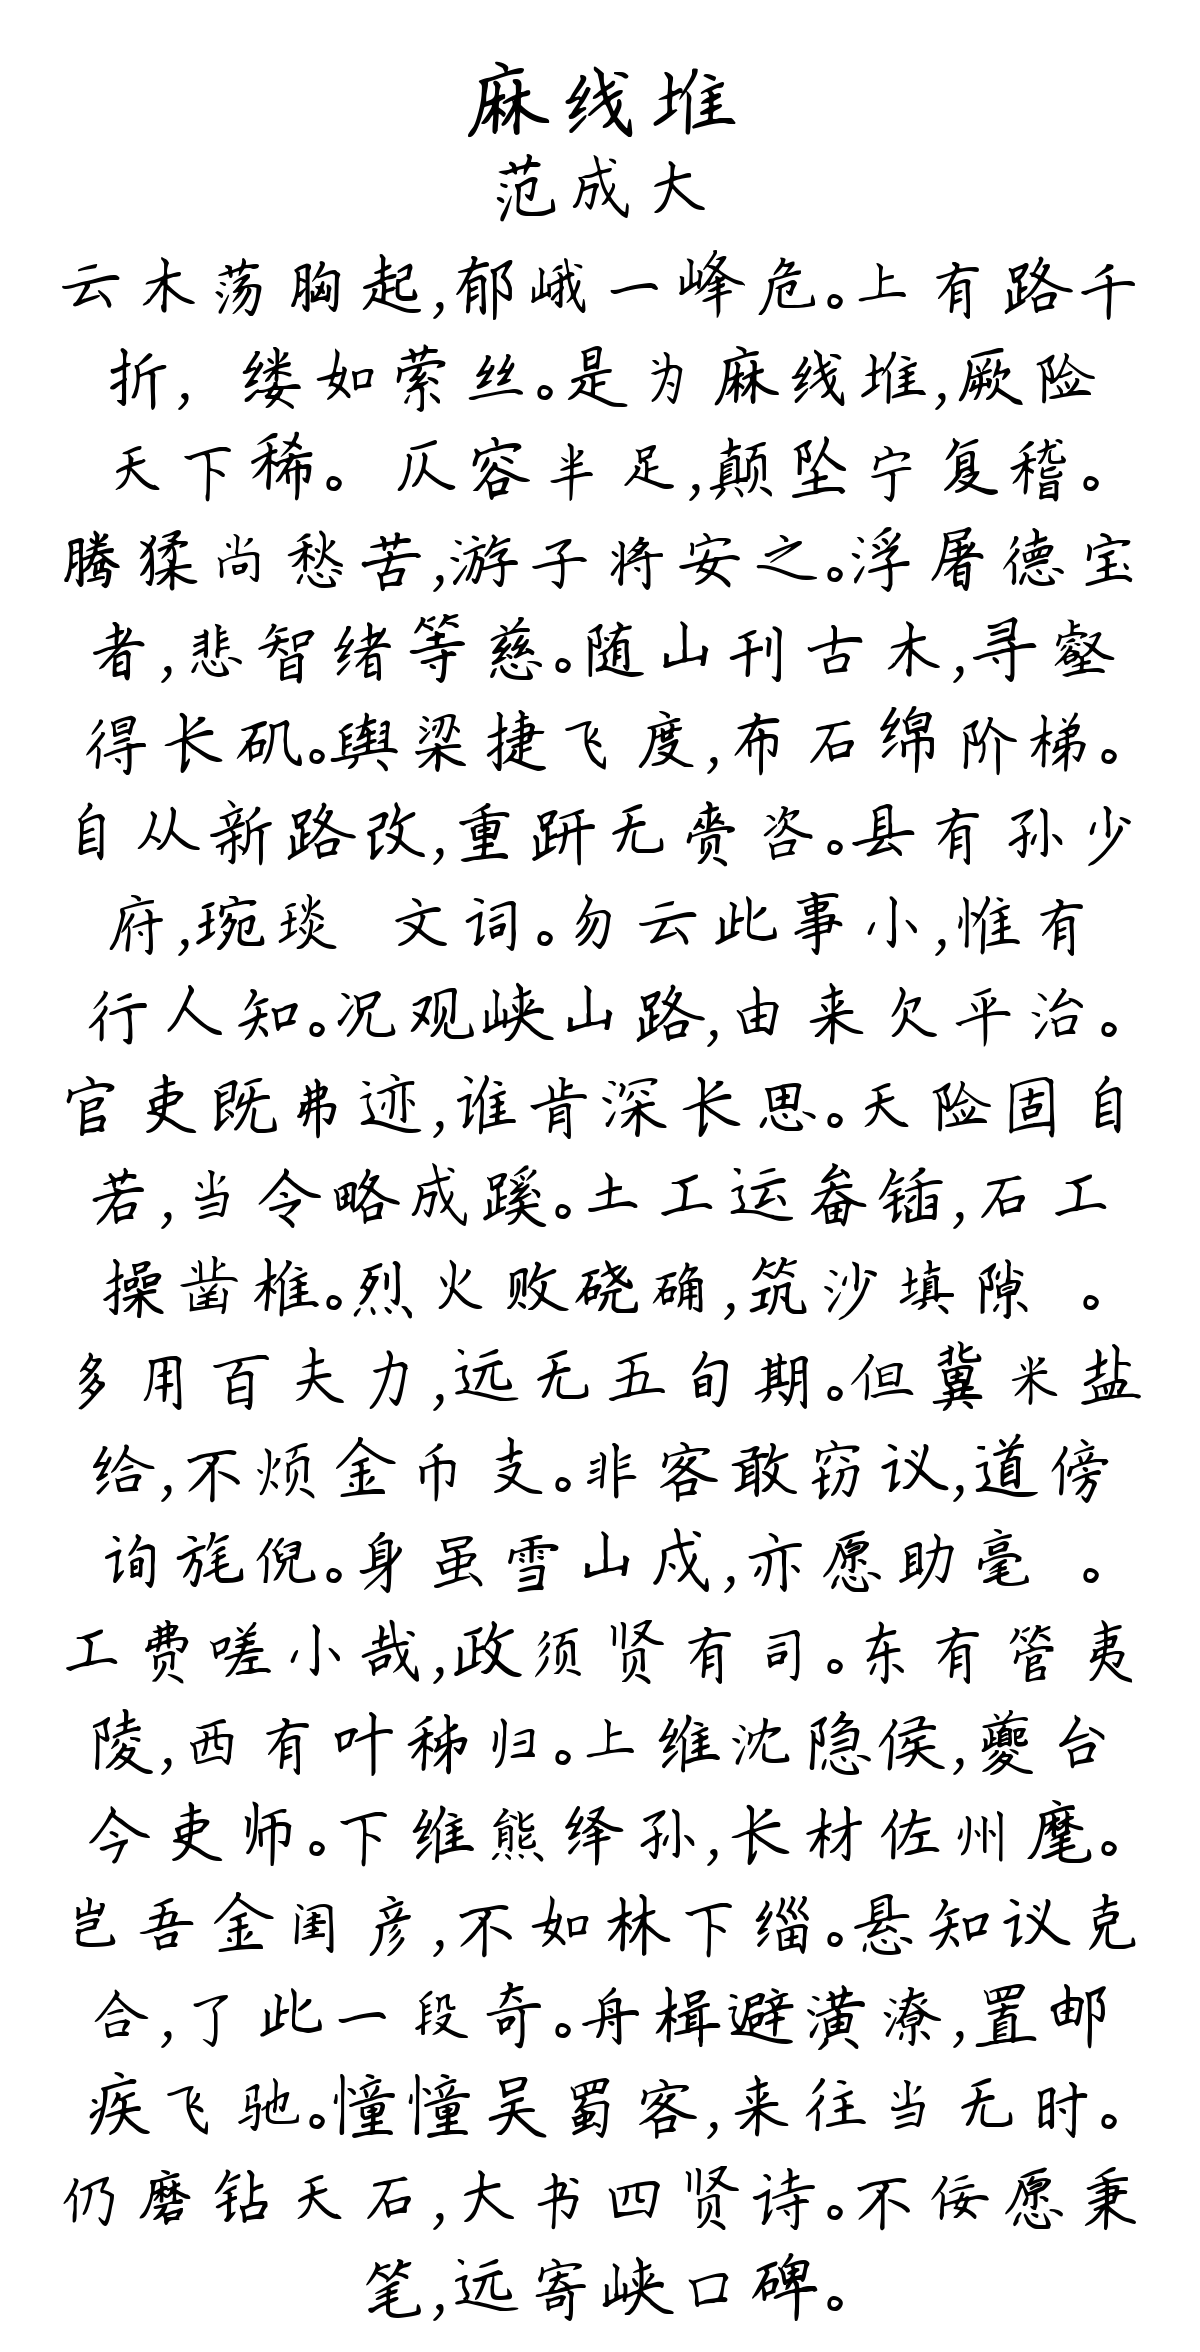 麻线堆
范成大
云木荡胸起,郁峨一峰危。上有路千
折, 缕如萦丝。是为麻线堆,厥险
天下稀。仄容半足,颠坠宁复稽。
腾猱尚愁苦,游子将安之。浮屠德宝
者,悲智绪等慈。随山刊古木,寻壑
得长矶。舆梁捷飞度,布石绵阶梯。
自从新路改,重趼无赍咨。县有孙少
府,琬琰 文词。勿云此事小,惟有
行人知。况观峡山路,由来欠平治。
官吏既弗迹,谁肯深长思。天险固自
若,当令略成蹊。土工运畚锸,石工
操凿椎。烈火败硗确,筑沙填隙 。
多用百夫力,远无五旬期。但冀米盐
给,不烦金币支。非客敢窃议,道傍
询旄倪。身虽雪山戍,亦愿助毫 。
工费嗟小哉,政须贤有司。东有管夷
陵,西有叶秭归。上维沈隐侯,夔台
今吏师。下维熊绎孙,长材佐州麾。
岂吾金闺彦,不如林下缁。悬知议克
合,了此一段奇。舟楫避潢潦,置邮
疾飞驰。憧憧吴蜀客,来往当无时。
仍磨钻天石,大书四贤诗。不佞愿秉
笔,远寄峡口碑。